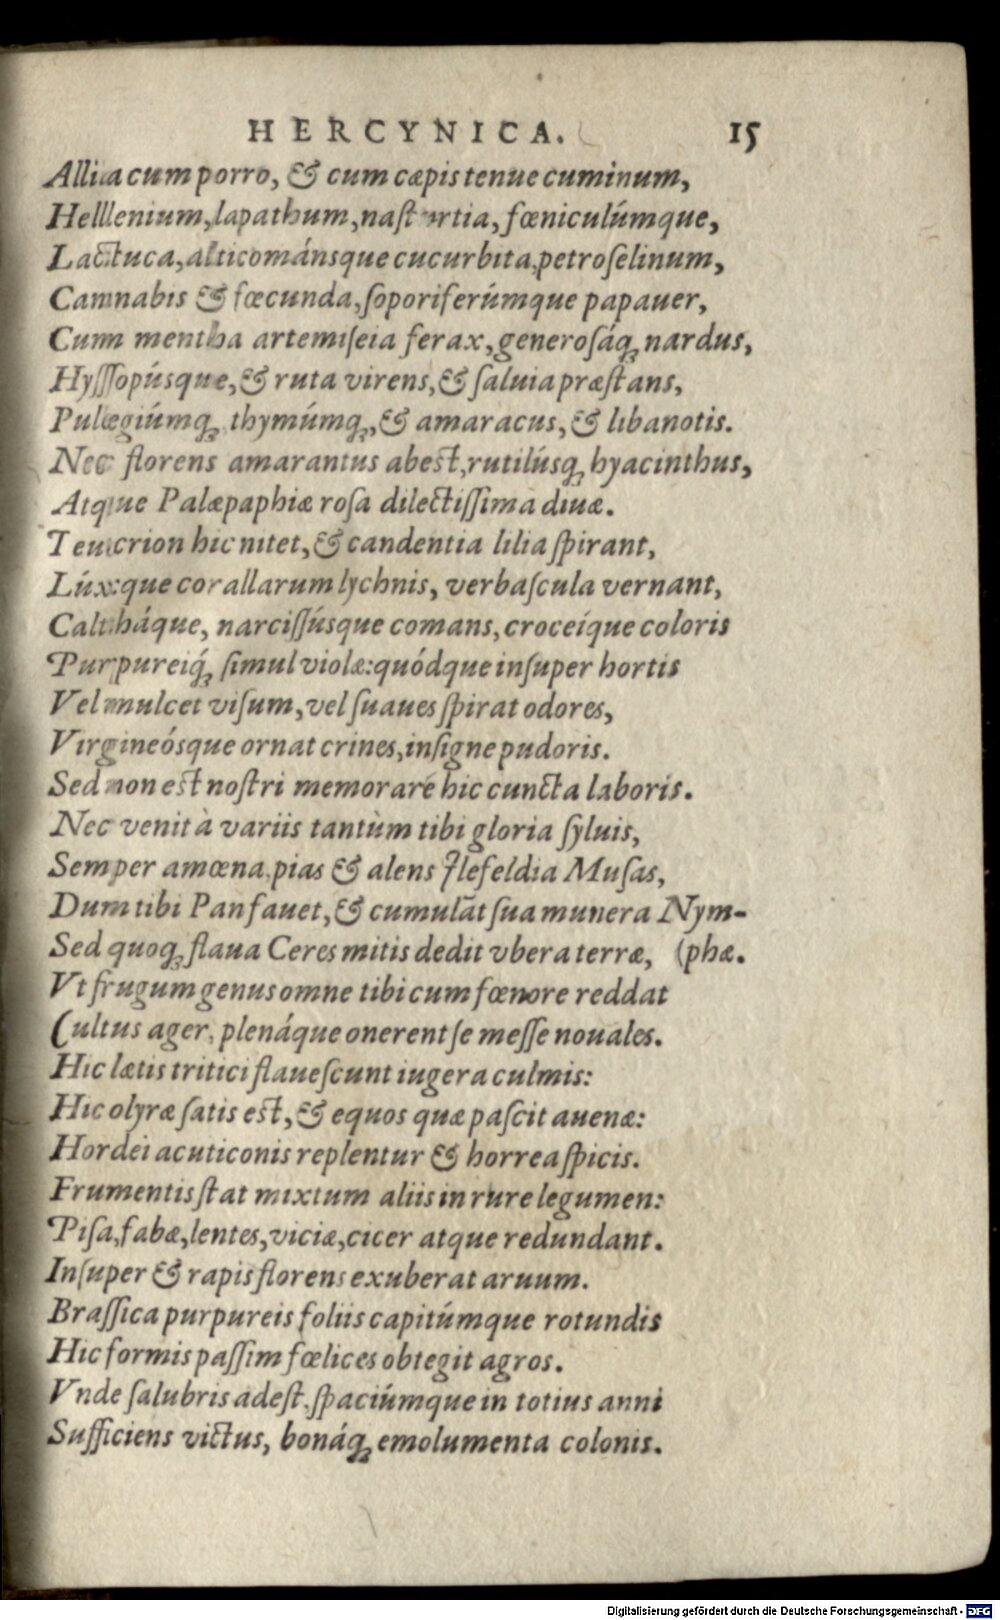 HERCYNICA. 15
Allia cum porro, & cum cæpis tenue cuminum,
Hellenium, lapathum, nasturtia, fœniculúmque,
Lactuca, alticománsque cucurbita, petroselinum,
Cannabis & fœcunda, soporiferúmque papauer,
Cum mentha artemiseia ferax, generosáq; nardus,
Hyssopúsque, & ruta virens, & saluia præstans,
Pulegiúmq; thymúmq;, & amaracus, & libanotis.
Nec florens amarantus abest, rutilúsq; hyacinthus,
Atque Palæpaphiæ rosa dilectissima diuæ.
Teucrion hic nitet, & candentia lilia spirant,
Lúxque corallarum lychnis, verbascula vernant,
Caltháque, narcissúsque comans, croceíque coloris
Purpureiq́; simul violæ: quódque insuper hortis
Vel mulcet visum, vel suaues spirat odores,
Virgineósque ornat crines, insigne pudoris.
Sed non est nostri memorare hic cuncta laboris.
Nec venit à variis tantùm tibi gloria syluis,
Semper amœna, pias & alens Ilefeldia Musas,
Dum tibi Pan fauet, & cumulāt sua munera Nym-
Sed quoq; flaua Ceres mitis dedit vbera terræ, (phæ.
Vt frugum genus omne tibi cum fœnore reddat
Cultus ager, plenáque onerent se messe nouales.
Hic lætis tritici flauescunt iugera culmis:
Hic olyræ satis est, & equos quæ pascit auenæ:
Hordei acuticonis replentur & horrea spicis.
Frumentis stat mixtum aliis in rure legumen:
Pisa, fabæ, lentes, viciæ, cicer atque redundant.
Insuper & rapis florens exuberat aruum.
Brassica purpureis foliis capitúmque rotundis
Hic formis passim fœlices obtegit agros.
Vnde salubris adest, spaciúmque in totius anni
Sufficiens victus, bonáq; emolumenta colonis.
Digitalisierung gefördert durch die Deutsche Forschungsgemeinschaft - DFG